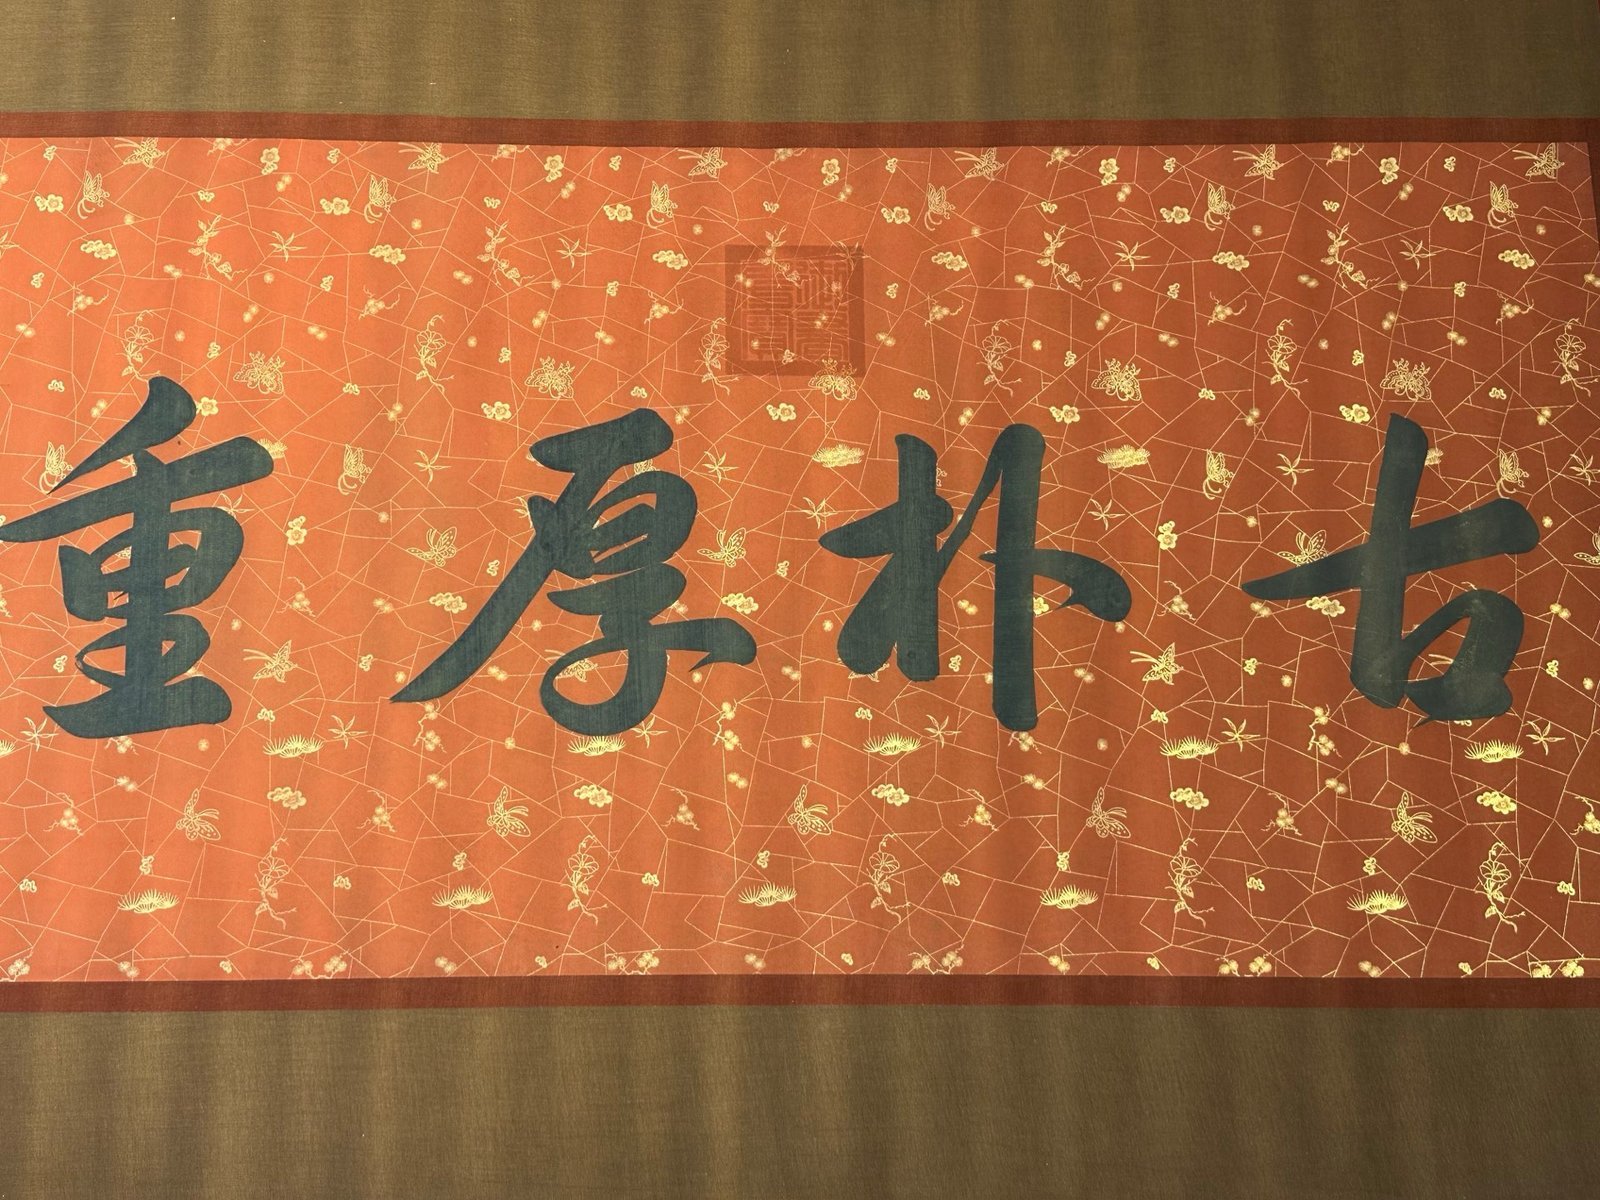 古朴厚重